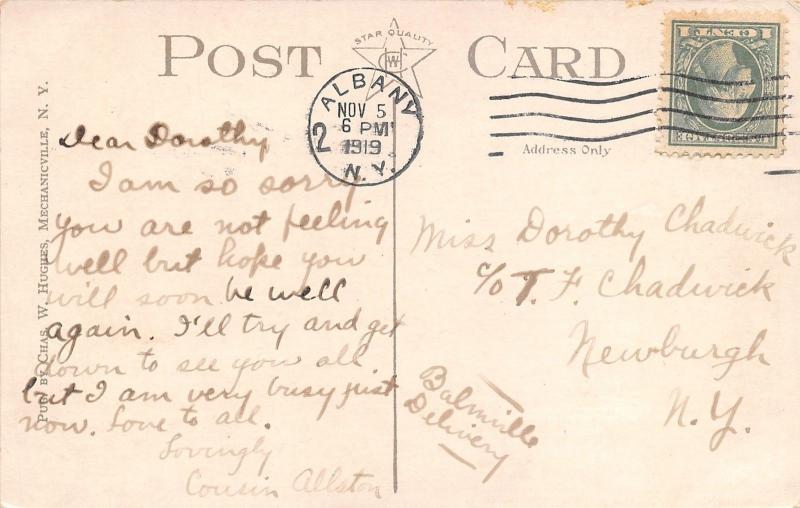 POST CARD
STAR QUALITY
CWH
ALBANY
NOV 5
6 PM
1919
N.Y.
2
Address Only
PUB. BY CHAS. W. HUGHES, MECHANICVILLE, N. Y.
Dear Dorothy
I am so sorry
you are not feeling
well but hope you
will soon be well
again. I'll try and get
down to see you all
but I am very busy just
now. Love to all.
Lovingly
Cousin Allston
Miss Dorothy Chadwick
c/o T. F. Chadwick
Newburgh
N.Y.
Balmville
Delivery